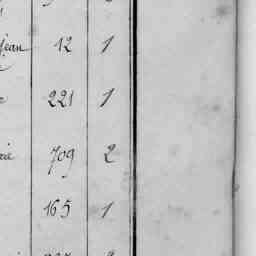 jean 12 1
221 1
709 2
165 1